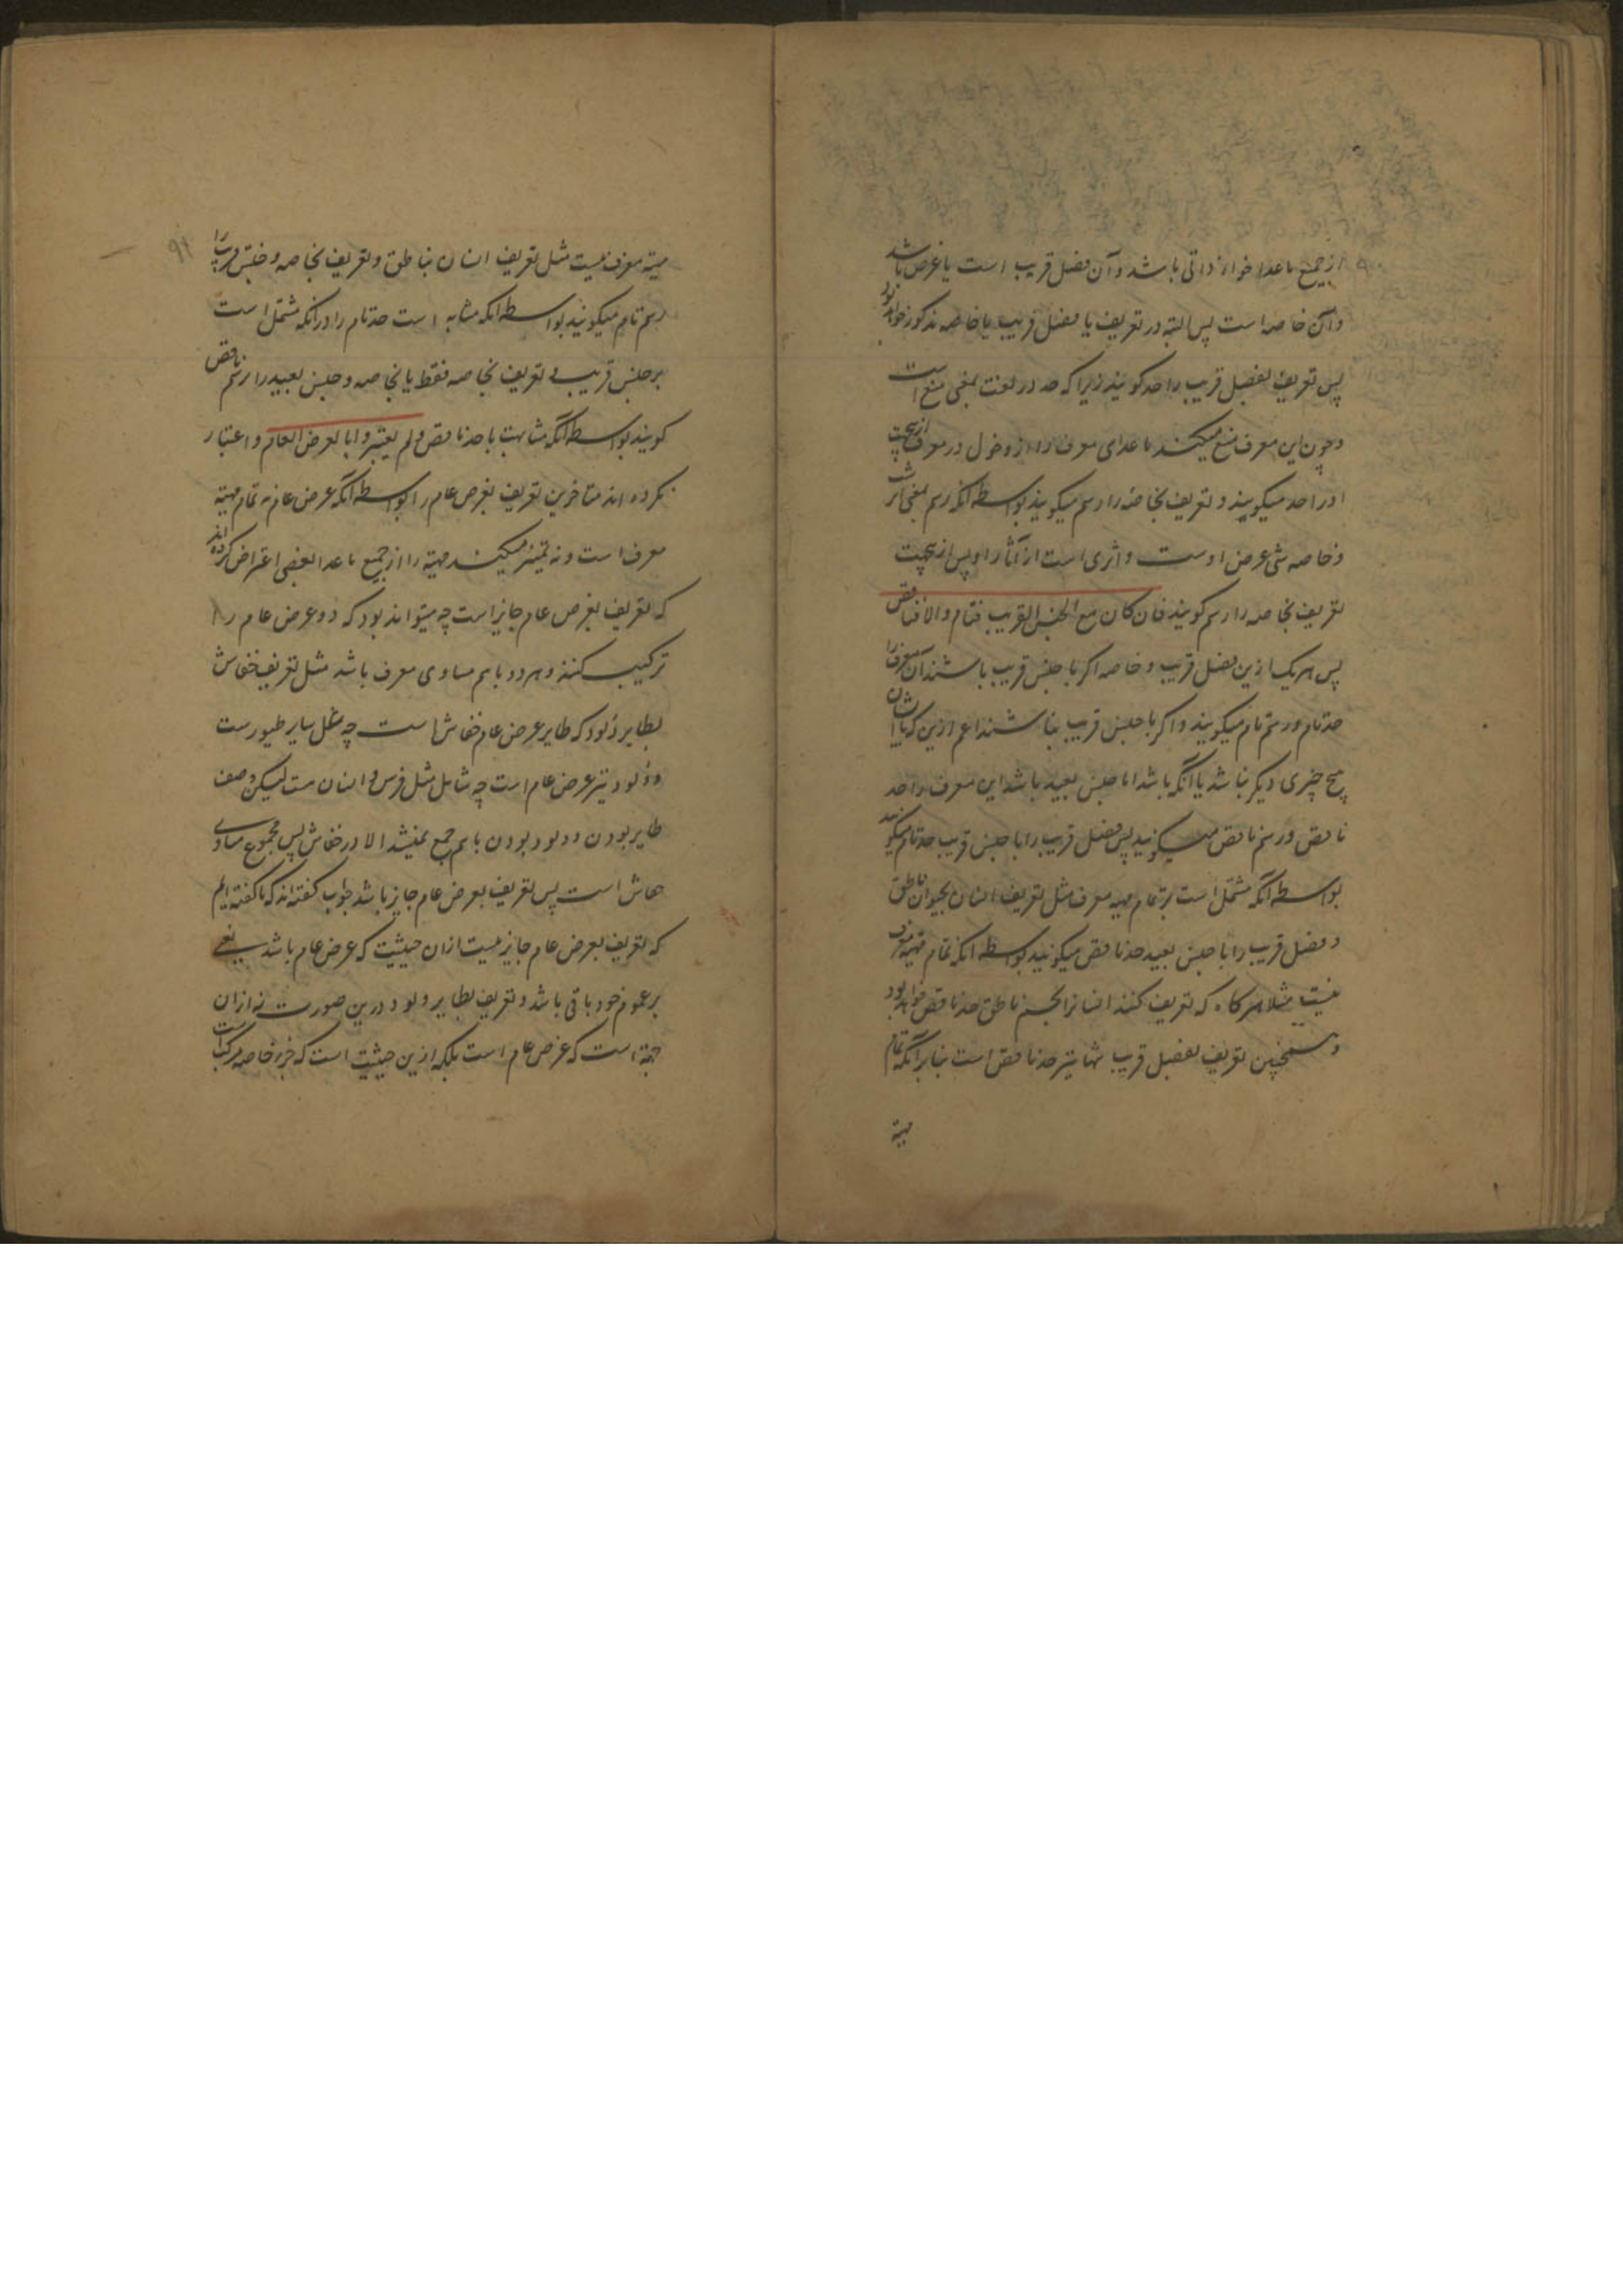 از جمیع ماعدا خواه ذاتی باشد و آن فصل قریب است یا عرضی باشد
و آن خاصه است پس البته در تعریف یا فصل قریب یا خاصه مذکور خواهد بود
پس تعریف بفصل قریب را حد کویند زیرا که حد در لغت بمعنی منع است
و چون این معرف منع میکند ماعدای معرف را از دخول در معرف ازینجهت
او را حد میکویند و تعریف بخاصه را رسم میکویند بواسطه آنکه رسم بمعنی اثر است
و خاصه شی عرض اوست و اثری است از آثار او پس ازینجهت
تعریف بخاصه را رسم کویند فان کان مع الجنس القریب فتام والا فناقص
پس هریک ازین فصل قریب و خاصه اکر با جنس قریب باشند آن معرف را
حد تام و رسم تام میکویند و اکر با جنس قریب نباشند اعم ازین که با ایشان
هیچ چیزی دیکر نباشد یا آنکه باشد اما جنس بعید باشد این معرف را حد
ناقص و رسم ناقص میکویند پس فصل قریب را با جنس قریب حد تام میکویند
بواسطه آنکه مشتمل است بر تمام مهیه معرف مثل تعریف انسان بحیوان ناطق
و فصل قریب را با جنس بعید حد ناقص میکویند بواسطه آنکه تمام مهیه معرف
نیست مثلا هرکاه که تعریف کنند انسانرا بجسم ناطق حد ناقص خواهد بود
و همچنین تعریف بفصل قریب تنها نیز حد ناقص است بنابر آنکه تمام
مهیة
۹۱
مهیة معرف نیست مثل تعریف انسان بناطق و تعریف بخاصه و جنس قریب را
رسم تام میکویند بواسطه آنکه مشابه است حد تام را در آنکه مشتمل است
بر جنس قریب و تعریف بخاصه فقط یا بخاصه و جنس بعید را رسم ناقص
کویند بواسطه آنکه مشابهت با حد ناقص و لم یعتبروا بالعرض العام و اعتبار
نکرده اند متاخرین تعریف بعرض عام را بواسطه آنکه عرض عام نه تمام مهیة
معرف است و نه تمیز میکند مهیة را از جمیع ماعدا بعضی اعتراض کرده اند
که تعریف بعرض عام جایز است چه میتواند بود که دو عرض عام را
ترکیب کنند و هر دو باهم مساوی معرف باشد مثل تعریف خفاش
بطایر ولود که طایر عرض عام خفاش است چه سایر طیورست
و ولود نیز عرض عام است چه شامل مثل فرس و انسان ست لیکن وصف
طایر بودن و ولود بودن باهم جمع نمیشد الا در خفاش پس مجموع مساوی
خفاش است پس تعریف بعرض عام جایز باشد جواب کفته اند که ما کفته ایم
که تعریف بعرض عام جایز نیست ازان حیثیت که عرض عام باشد یعنی
بر عموم خود باقی باشد و تعریف بطایر ولود درین صورت نه ازان
جهة است که عرض عام است بلکه ازین حیثیت است که جزء خاصه مرکبه است